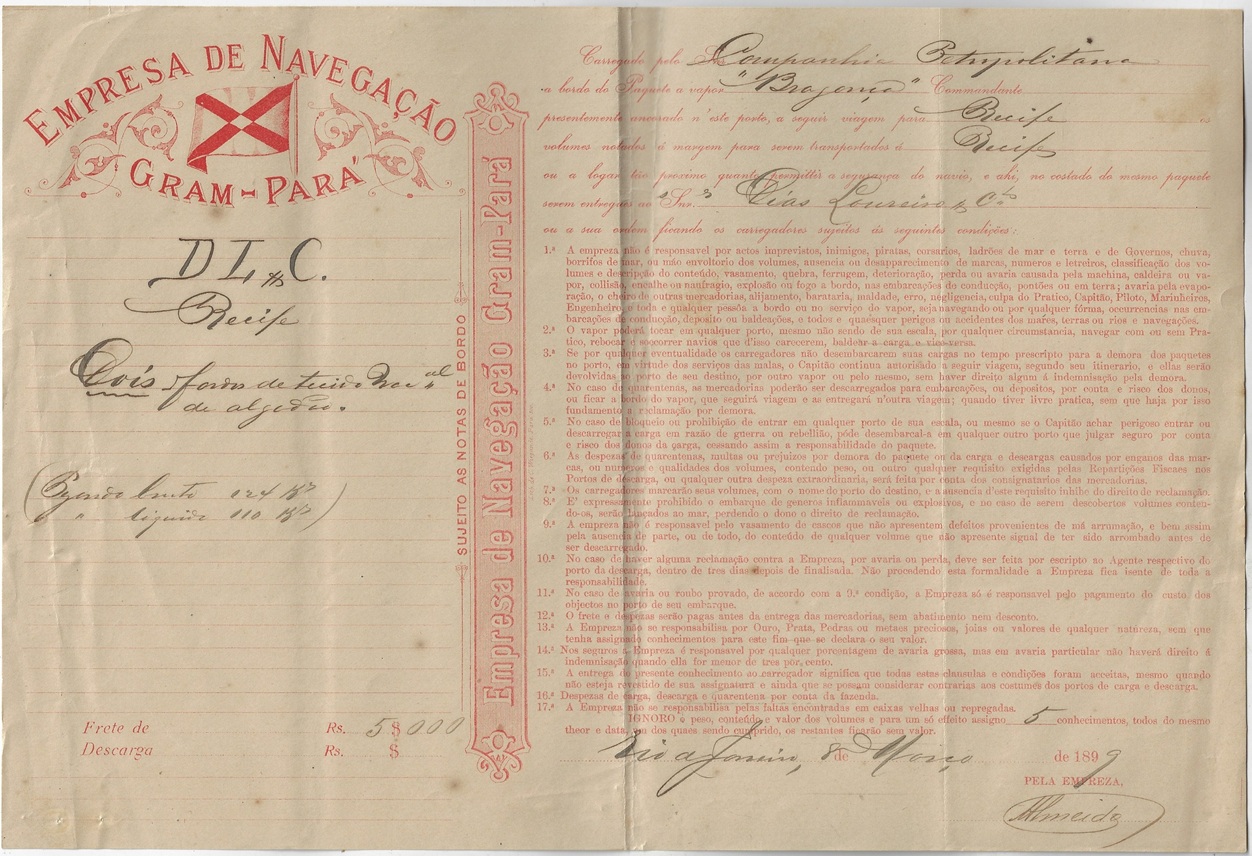 EMPRESA DE NAVEGAÇÃO
GRAM-PARÁ
D L & C.
Recife
Dois fardos de tecido Nac.al
de algodão.
(Pezando bruto 124 Ks
" liquido 110 Ks)
Frete de Rs. 5$000
Descarga Rs. $
SUJEITO AS NOTAS DE BORDO
Empresa de Navegação Gram-Pará
Carregado pelo Snr Companhia Petropolitana
a bordo do Paquete a vapor "Bragança" Commandante
presentemente ancorado n'este porto, a seguir viagem para Recife os
volumes notados á margem para serem transportados á Recife
ou a logar tão proximo quanto permittir a segurança do navio, e ahi, no costado do mesmo paquete
serem entregues ao Snr.s Dias Loureiro & Cia
ou a sua ordem ficando os carregadores sujeitos ás seguintes condições:
1.ª A empreza não é responsavel por actos imprevistos, inimigos, piratas, corsarios, ladrões de mar e terra e de Governos, chuva,
borrifos de mar, ou não envoltorio dos volumes, ausencia ou desapparecimento de marcas, numeros e letreiros, classificação dos vo-
lumes e descripção do conteúdo, vasamento, quebra, ferrugem, deterioração, perda ou avaria causada pela machina, caldeira ou va-
por, collisão encalhe ou naufragio, explosão ou fogo a bordo, nas embarcações de conducção, pontões ou em terra; avaria pela evapo-
ração, o cheiro de outras mercadorias, alijamento, barataria, maldade, erro, negligencia, culpa do Pratico, Capitão, Piloto, Marinheiros,
Engenheiro e toda e qualquer pessôa a bordo ou no serviço do vapor, seja navegando ou por qualquer fórma, occurrencias nas em-
barcações de conducção, deposito ou baldeações, e todos e quaisquer perigos ou accidentes dos mares, terras ou rios e navegações.
2.ª O vapor poderá tocar em qualquer porto, mesmo não sendo de sua escala, por qualquer circumstancia, navegar com ou sem Pra-
tico, rebocar e soccorrer navios que d'isso carecerem, baldear a carga e vice-versa.
3.ª Se por qualquer eventualidade os carregadores não desembarcarem suas cargas no tempo prescripto para a demora dos paquetes
no porto, em virtude dos serviços das malas, o Capitão continua autorisado a seguir viagem, segundo seu itinerario, e ellas serão
devolvidas ao porto de seu destino, por outro vapor ou pelo mesmo, sem haver direito algum á indemnisação pela demora.
4.ª No caso de quarentenas, as mercadorias poderão ser descarregadas para embarcações, ou depositos, por conta e risco dos donos,
ou ficar a bordo do vapor, que seguirá viagem e as entregará n'outra viagem; quando tiver livre pratica, sem que haja por isso
fundamento a reclamação por demora.
5.ª No caso de bloqueio ou prohibição de entrar em qualquer porto de sua escala, ou mesmo se o Capitão achar perigoso entrar ou
descarregar a carga em razão de guerra ou rebellião, póde desembarcal-a em qualquer outro porto que julgar seguro por conta
e risco dos donos da carga, cessando assim a responsabilidade do paquete.
6.ª As despezas de quarentenas, multas ou prejuizos por demora do paquete ou da carga e descargas causados por enganos das mar-
cas, ou numeros e qualidades dos volumes, contendo peso, ou outro qualquer requisito exigidas pelas Repartições Fiscaes nos
Portos de descarga, ou qualquer outra despeza extraordinaria, será feita por conta dos consignatarios das mercadorias.
7.ª Os carregadores marcarão seus volumes, com o nome do porto do destino, e a ausencia d'este requisito inhibe do direito de reclamação.
8.ª E' expressamente prohibido o embarque de generos inflammaveis ou explosivos, e no caso de serem descobertos volumes conten-
do-os, serão lançados ao mar, perdendo o dono o direito de reclamação.
9.ª A empreza não é responsavel pelo vasamento de cascos que não apresentem defeitos provenientes de má arrumação, e bem assim
pela ausencia de parte, ou de todo, de conteúdo de qualquer volume que não apresente signal de ter sido arrombado antes de
ser descarregado.
10.ª No caso de haver alguma reclamação contra a Empreza, por avaria ou perda, deve ser feita por escripto ao Agente respectivo do
porto da descarga, dentro de tres dias depois de finalisada. Não procedendo esta formalidade a Empreza fica isente de toda a
responsabilidade.
11.ª No caso de avaria ou roubo provado, de accordo com a 9.ª condição, a Empreza só é responsavel pelo pagamento do custo dos
objectos no porto de seu embarque.
12.ª O frete e despezas serão pagas antes da entrega das mercadorias, sem abatimento nem desconto.
13.ª A Empreza não se responsabilisa por Ouro, Prata, Pedras ou metaes preciosos, joias ou valores de qualquer natureza, sem que
tenha assignado conhecimentos para este fim que se declara o seu valor.
14.ª Nos seguros a Empreza é responsavel por qualquer porcentagem de avaria grossa, mas em avaria particular não haverá direito á
indemnisação quando ella for menor de tres por cento.
15.ª A entrega do presente conhecimento ao carregador significa que todas estas clausulas e condições foram acceitas, mesmo quando
não esteja revestido de sua assignatura e ainda que se possam considerar contrarias aos costumes dos portos de carga e descarga.
16.ª Despezas de carga, descarga e quarentena por conta da fazenda.
17.ª A Empreza não se responsabilisa pelas faltas encontradas em caixas velhas ou repregadas.
IGNORO o peso, conteúdo e valor dos volumes e para um só effeito assigno 5 conhecimentos, todos do mesmo
theor e data, um dos quaes sendo cumprido, os restantes ficarão sem valor.
Rio de Janeiro, 8 de Março de 1899
PELA EMPREZA,
Almeida